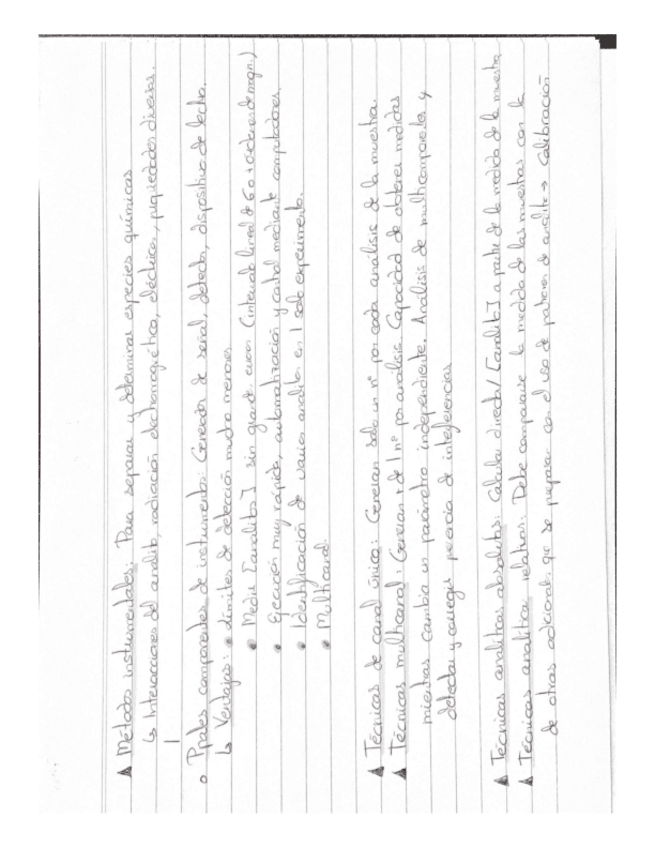 ▲ Métodos instrumentales: Para separar y determinar especies químicas
↳ Interacciones del analito, radiación electromagnética, eléctrica, propiedades diversas.
o Ppales componentes de instrumento: Generador de señal, detector, dispositivo de lectura.
↳ Ventajas: • Límites de detección mucho menores
• Medir [analito] sin grandes errores (intervalo lineal de 6 órdenes de magn.)
• Ejecución muy rápida, automatización y control mediante computadores.
• Identificación de varios analitos en 1 solo experimento.
• Multicanal.
▲ Técnicas de canal único: Generan solo un nº por cada análisis de la muestra.
▲ Técnicas multicanal: Generan + de 1 nº por análisis. Capacidad de obtener medidas
mientras cambia un parámetro independiente. Análisis de multicomponentes y
detectar y corregir presencia de interferencias
▲ Técnicas analíticas absolutas: Calcular directa/ [analito] a partir de la medida de la muestra
▲ Técnicas analíticas relativas: Debe compararse la medida de las muestras con la
de otras adicionales que se preparan con el uso de patrones de analito → Calibración